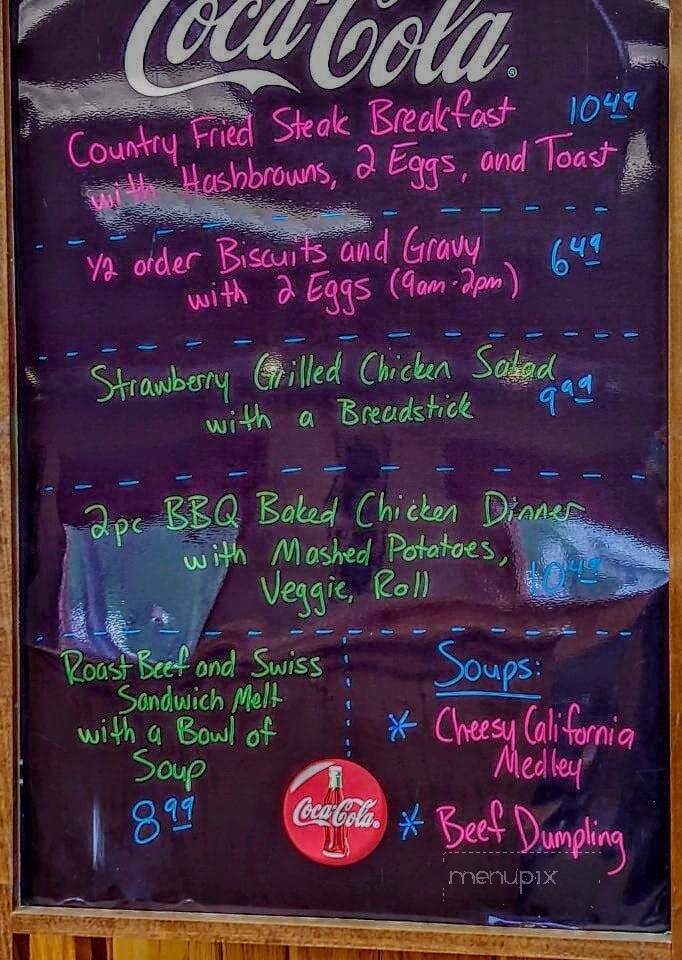 Coca-Cola
Country Fried Steak Breakfast 10.49
with Hashbrowns, 2 Eggs, and Toast
1/2 order Biscuits and Gravy 6.49
with 2 Eggs (9am-2pm)
Strawberry Grilled Chicken Salad
with a Breadstick 9.99
2pc BBQ Baked Chicken Dinner
with Mashed Potatoes, 10.49
Veggie, Roll
Roast Beef and Swiss
Sandwich Melt
with a Bowl of
Soup
8.99
Soups:
* Cheesy California
Medley
* Beef Dumpling
Coca-Cola
menupix